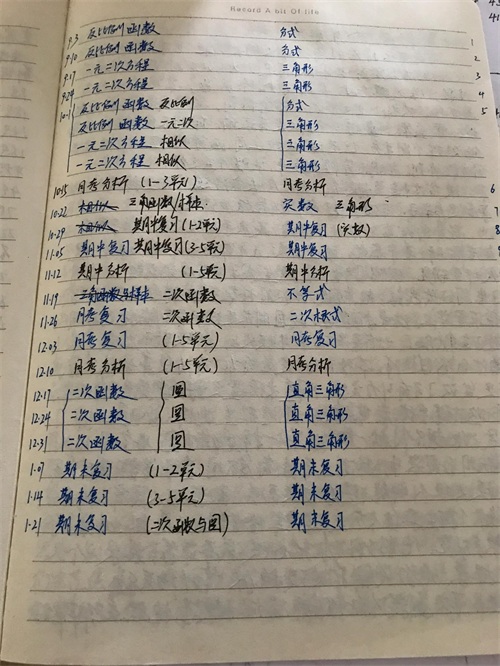 Record A bit Of life
9.3 反比例函数 方式 1
9.10 反比例函数 方式 2
9.17 一元二次方程 三角形 3
9.24 一元二次方程 三角形 4
10.1 反比例函数 反比例 方式 5
反比例函数 一元二次 三角形
一元二次方程 相似 三角形
一元二次方程 相似 三角形
10.15 月考分析 (1-3单元) 月考分析 6
10.22 相似 三角函数/样本 实数 三角形 7
10.29 相似 期中复习(1-2单元) 期中复习(实数) 8
11.05 期中复习 期中复习(3-5单元) 期中复习
11.12 期中分析 (1-5单元) 期中分析
11.19 三角函数与样本 二次函数 不等式
11.26 月考复习 二次函数 二次根式
12.03 月考复习 (1-5单元) 月考复习
12.10 月考分析 (1-5单元) 月考分析
12.17 二次函数 圆 直角三角形
12.24 二次函数 圆 直角三角形
12.31 二次函数 圆 直角三角形
1.07 期末复习 (1-2单元) 期末复习
1.14 期末复习 (3-5单元) 期末复习
1.21 期末复习 (二次函数与圆) 期末复习